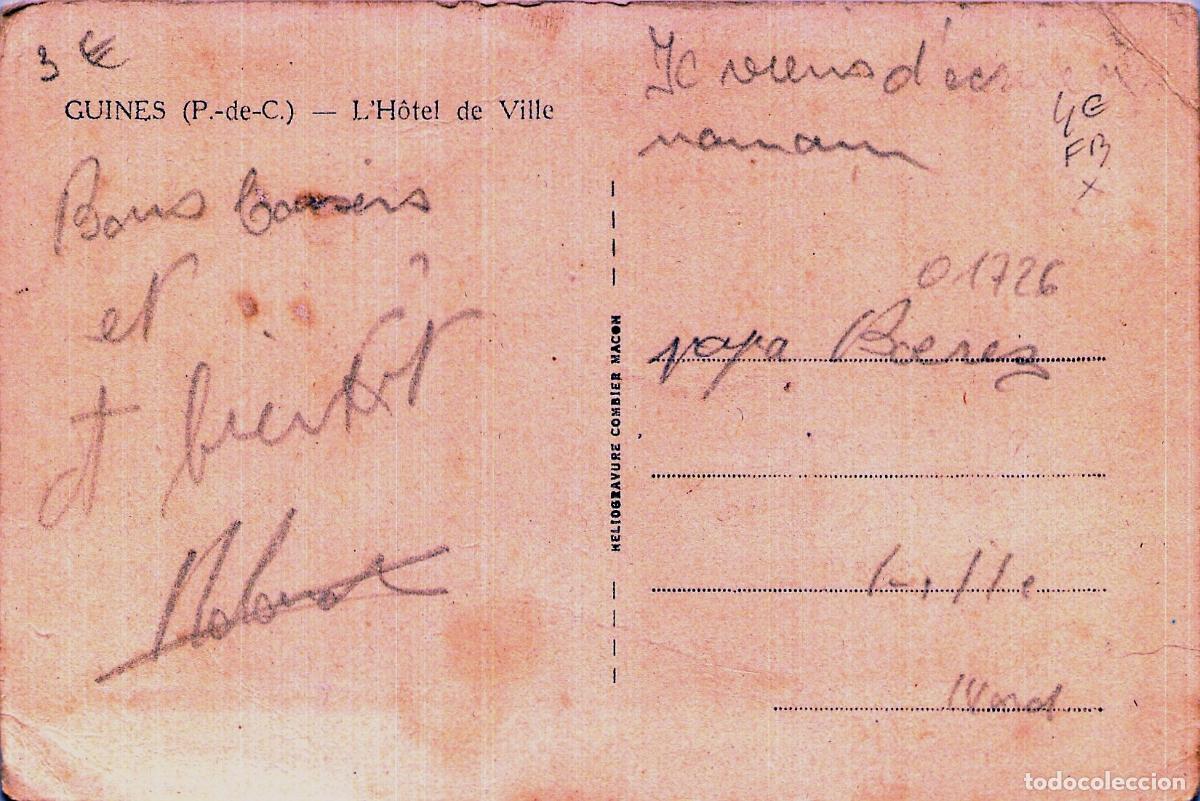 3 €
GUINES (P.-de-C.) — L'Hôtel de Ville
Bons baisers
et
à bientôt
Je viens d'écrire à
maman
4€
FB
x
01726
papa
Lille
Nord
HELIOGRAVURE COMBIER MACON
todocoleccion